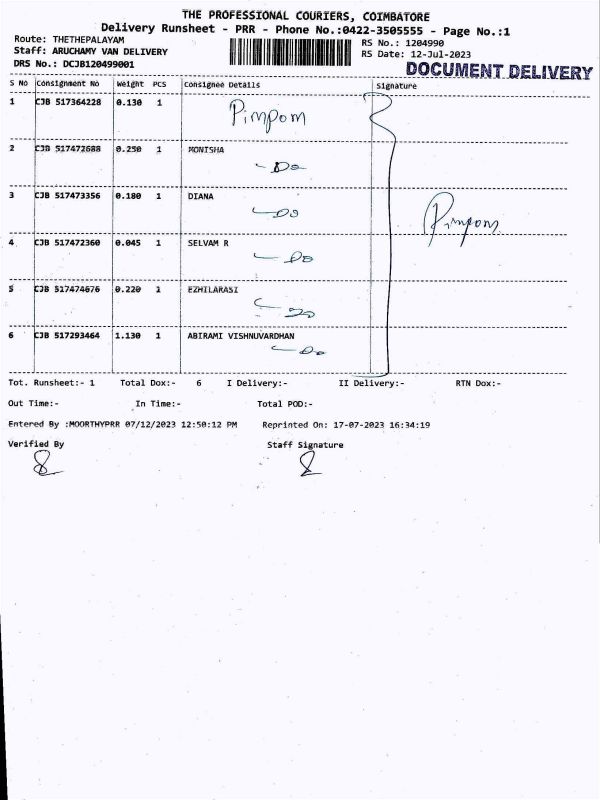 THE PROFESSIONAL COURIERS, COIMBATORE
Delivery Runsheet - PRR - Phone No.:0422-3505555 - Page No.:1
Route: THETHEPALAYAM
RS No.: 1204990
Staff: ARUCHAMY VAN DELIVERY
RS Date: 12-Jul-2023
DRS No.: DCJB120499001
DOCUMENT DELIVERY
S No Consignment No Weight PCS Consignee Details Signature
1 CJB 517364228 0.130 1 Pimpom
2 CJB 517472688 0.250 1 MONISHA
- Do
3 CJB 517473356 0.180 1 DIANA
- Do
Pimpom
4 CJB 517472360 0.045 1 SELVAM R
- Do
5 CJB 517474676 0.220 1 EZHILARASI
- Do
6 CJB 517293464 1.130 1 ABIRAMI VISHNUVARDHAN
- Do
Tot. Runsheet:- 1 Total Dox:- 6 I Delivery:- II Delivery:- RTN Dox:-
Out Time:- In Time:- Total POD:-
Entered By :MOORTHYPRR 07/12/2023 12:50:12 PM Reprinted On: 17-07-2023 16:34:19
Verified By Staff Signature